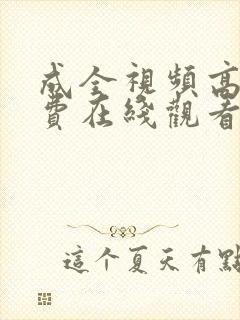 成全視頻高
費在綫觀看
這个夏天有點